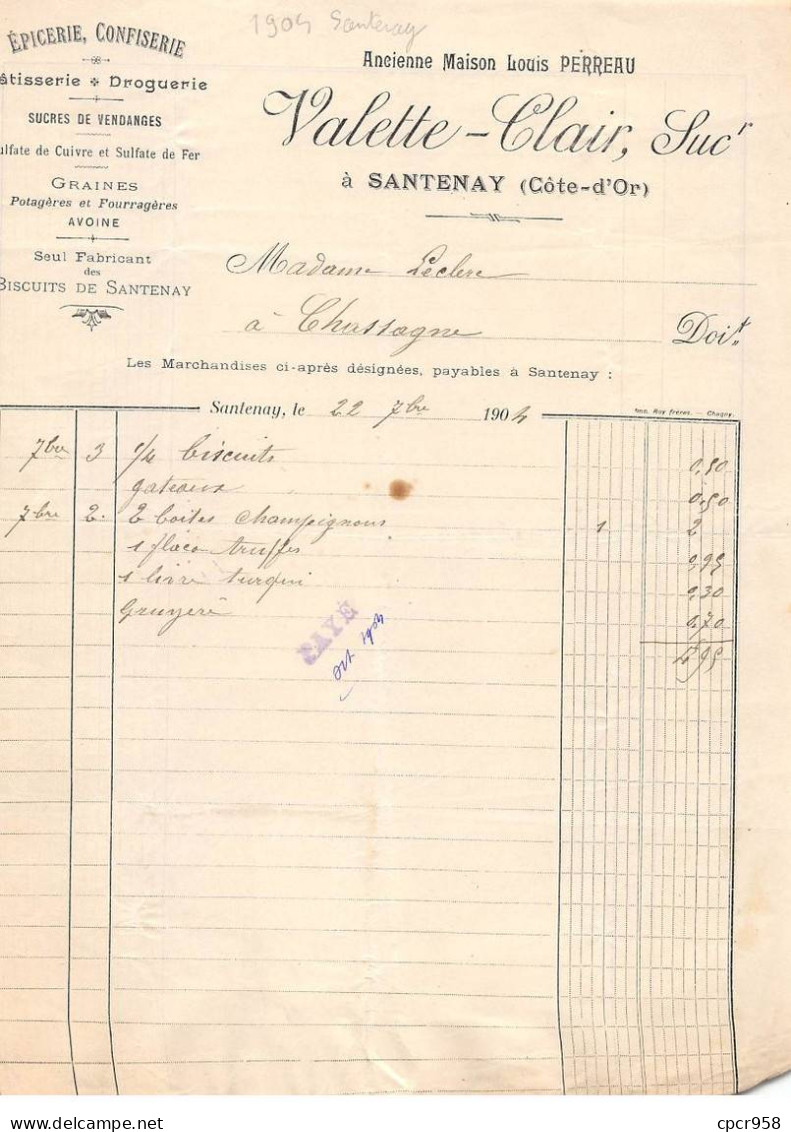 1904 Santenay
ÉPICERIE, CONFISERIE
âtisserie Droguerie
SUCRES DE VENDANGES
ulfate de Cuivre et Sulfate de Fer
GRAINES
Potagères et Fourragères
AVOINE
Seul Fabricant
des
BISCUITS DE SANTENAY
Ancienne Maison Louis PERREAU
Valette-Clair, Sucr
à SANTENAY (Côte-d'Or)
Madame Leclerc
à Chassagne Doit
Les Marchandises ci-après désignées, payables à Santenay :
Santenay, le 22 7bre 1904
Imp. Roy frères. — Chagny.
7bre 3 1/4 biscuits 0,50
gateaux 0,50
7bre 2. 2 boites champignons 1 2
1 flaco truffes 0,95
1 livre turqui 0,30
Gruyere 0,70
4,95
PAYÉ
oct 1904
www.delcampe.net
cpcr958